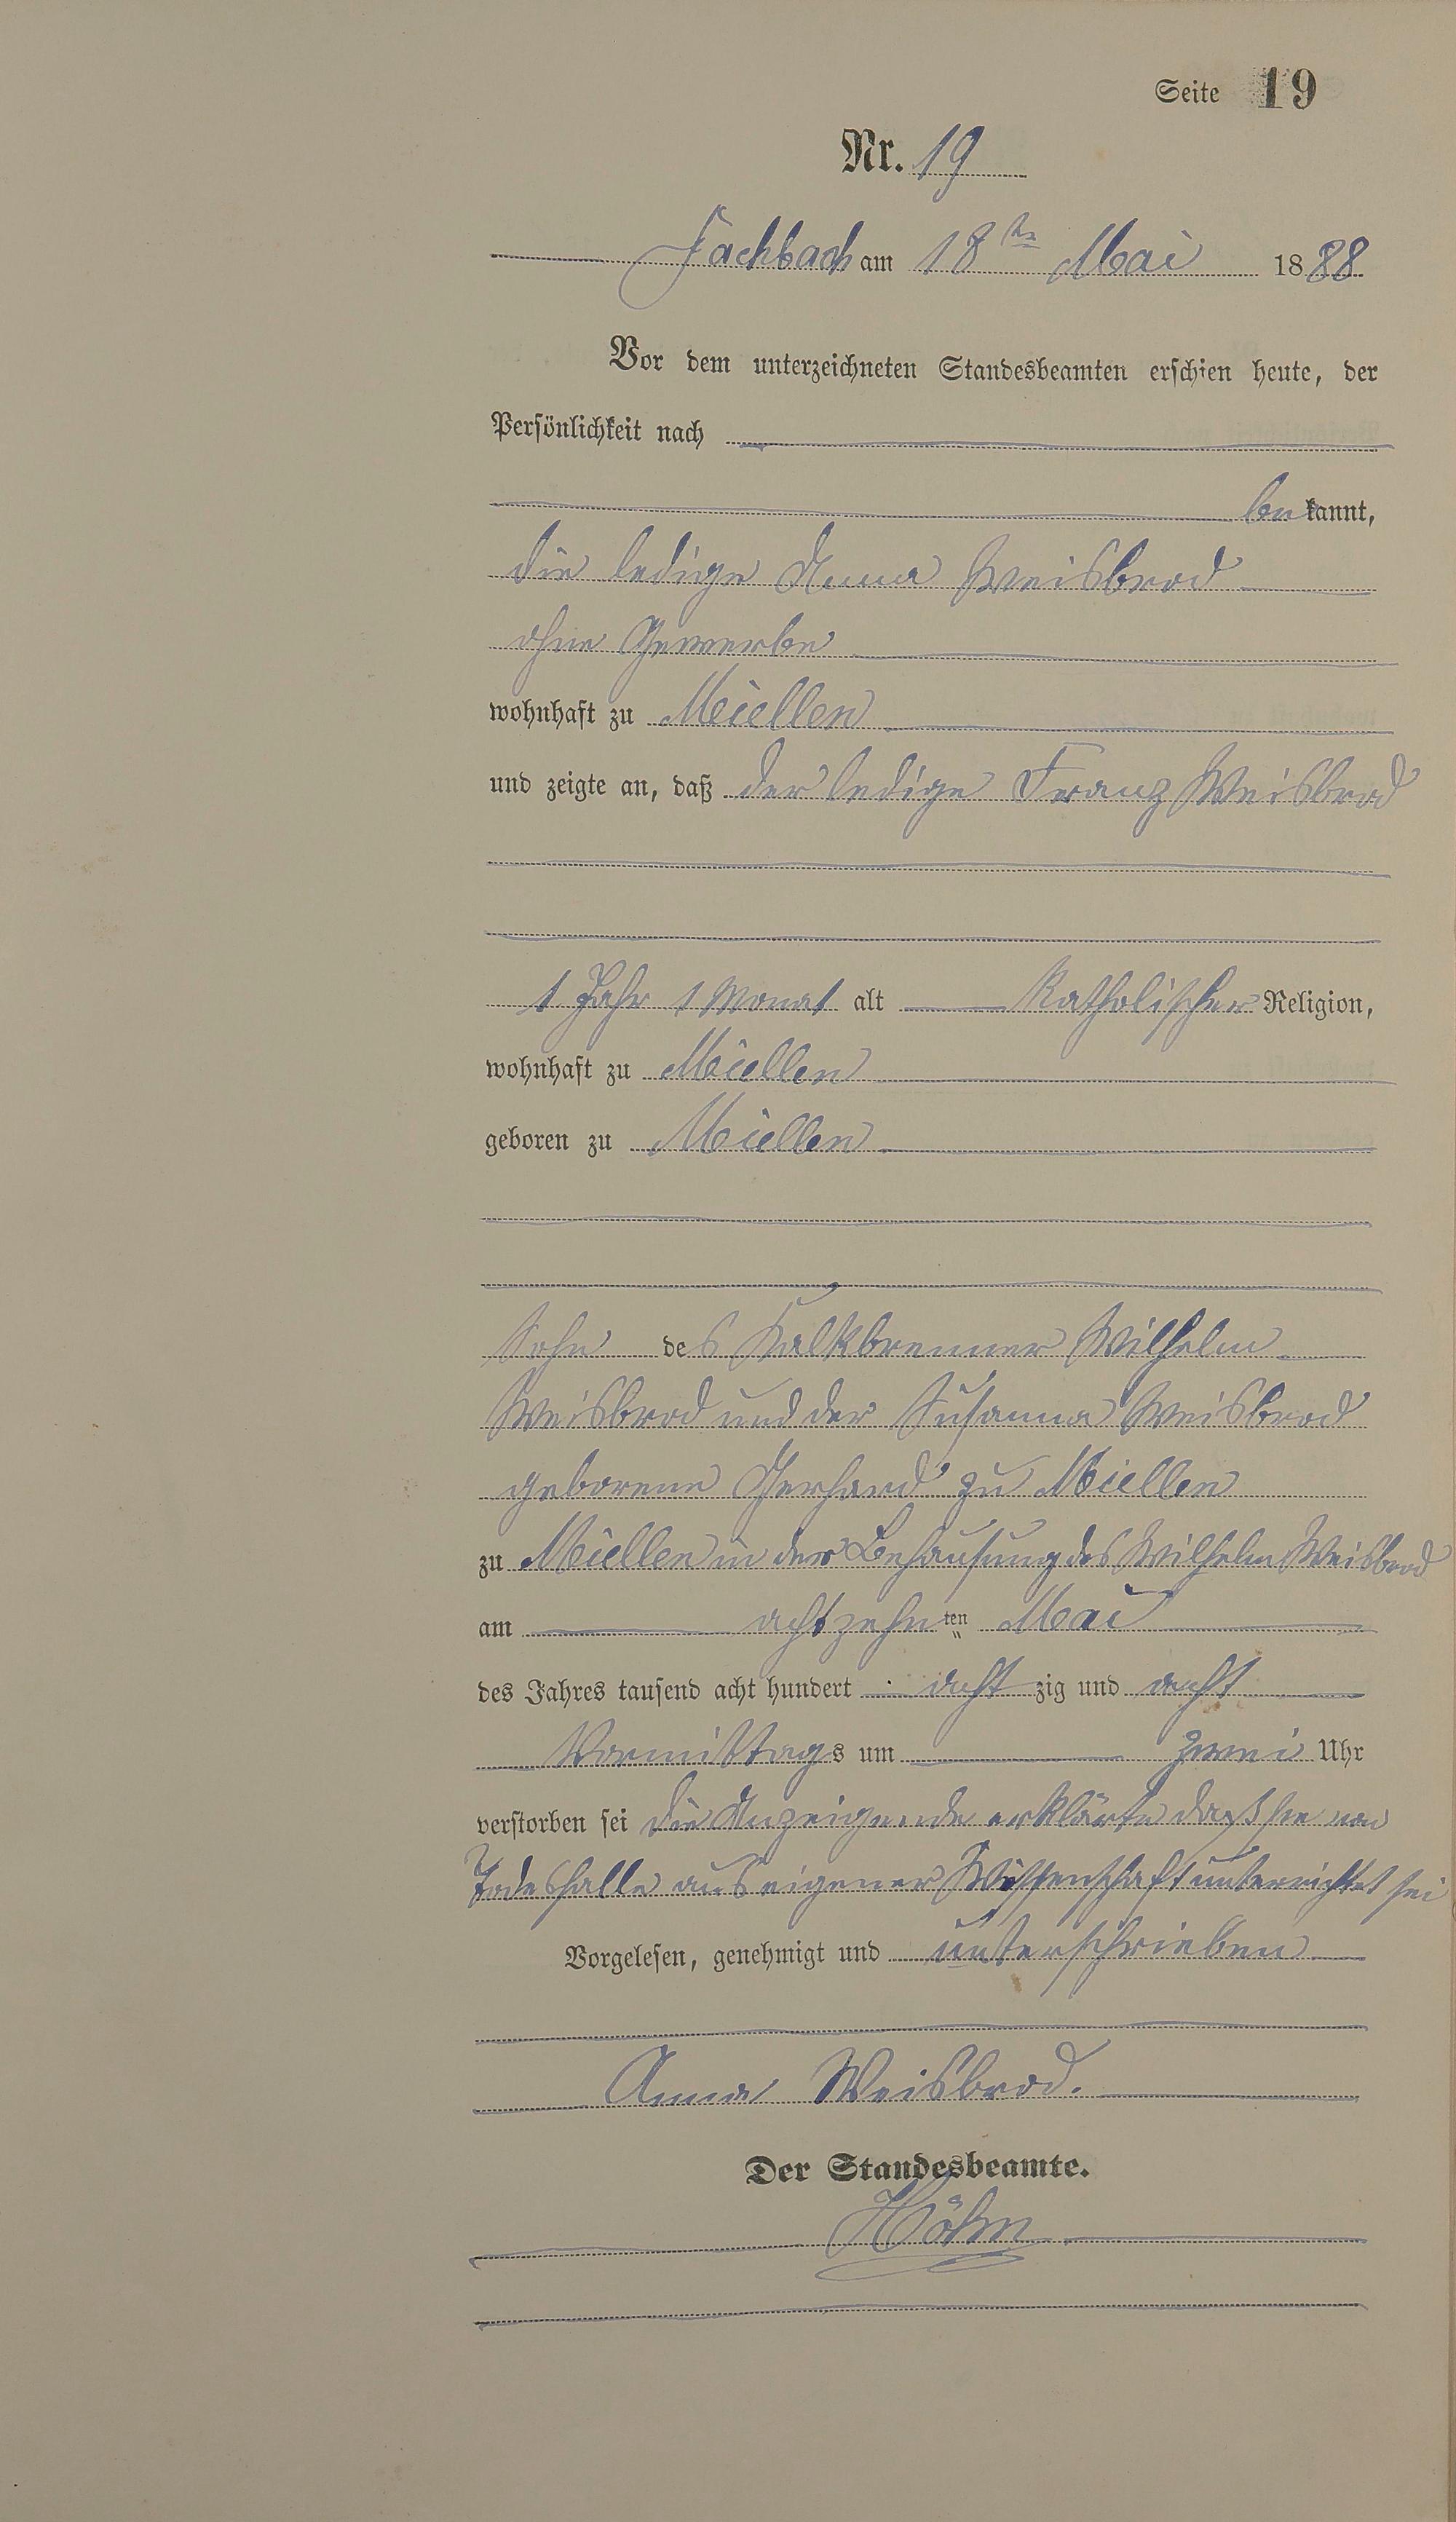 Seite 19
Nr. 19
Fachbach am 18ten Mai 1888
Vor dem unterzeichneten Standesbeamten erschien heute, der
Persönlichkeit nach
bekannt,
die ledige Anna Weisbrod
ohne Gewerbe
wohnhaft zu Miellen
und zeigte an, daß der ledige Franz Weisbrod
1 Jahr 1 Monat alt katholischer Religion,
wohnhaft zu Miellen
geboren zu Miellen
Sohn des Kalkbrenner Wilhelm
Weisbrod und der Susanna Weisbrod
geborene Gerhard zu Miellen
zu Miellen in der Behausung des Wilhelm Weisbrod
am achtzehnten Mai
des Jahres tausend acht hundert acht zig und acht
Vormittags um zwei Uhr
verstorben sei die Anzeigende erklärte daß sie von
Todesfalle aus eigener Wissenschaft unterrichtet sei
Vorgelesen, genehmigt und unterschrieben
Anna Weisbrod.
Der Standesbeamte.
Höhn